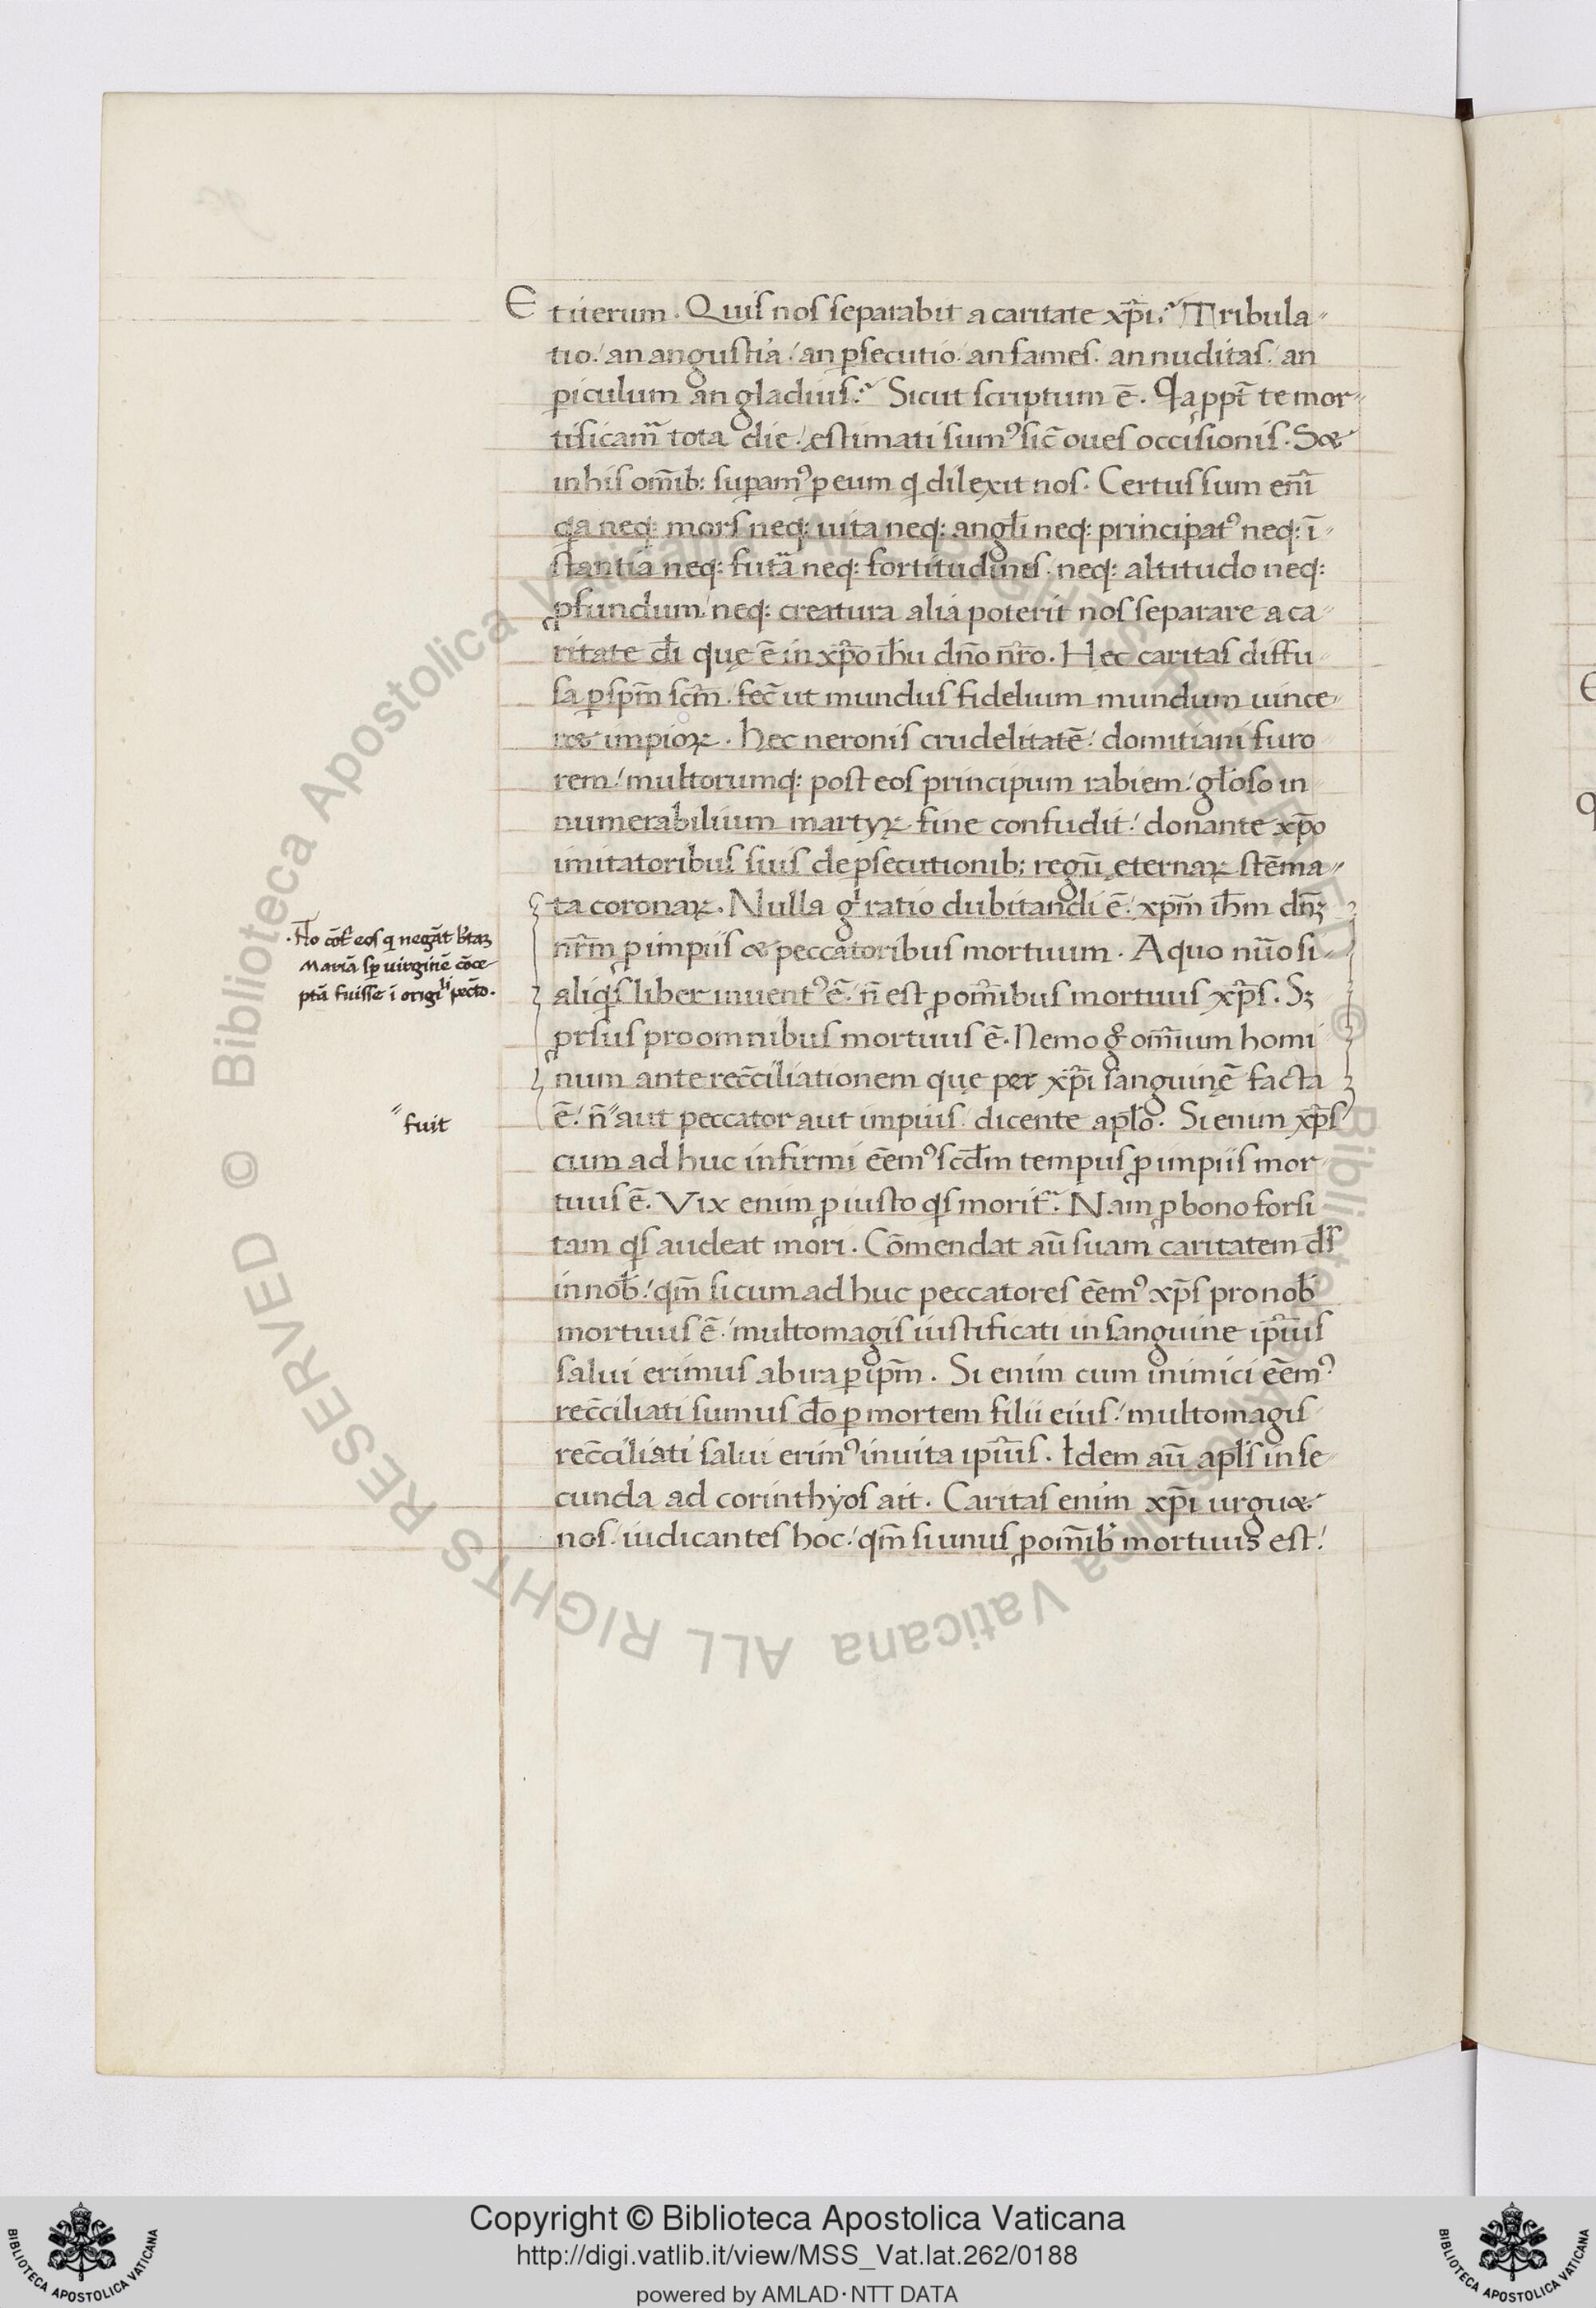 Et iterum. Quis nos separabit a caritate xp̄i? Tribula-
tio / an angustia / an ꝑsecutio / an fames. an nuditas / an
ꝑiculum an gladius? Sicut scriptum ē. Qa ꝓpt̄ te mor-
tificamͬ tota die / estimati sumꝰ sic̄ oues occisionis. S&
in his om̄ib: suꝑamꝰ ꝑ eum q̇ dilexit nos. Certus sum eni̅
qa neq: mors neq: uita neq: angłi neq: principatꝰ neq: ī-
stantia neq: futᷓa neq: fortitudines. neq: altitudo neq:
ꝓfundum / neq: creatura alia poterit nos separare a ca-
ritate dī quę ē in xp̄o ih̄u dn̄o nr̄o. Hec caritas diffu-
sa ꝑ sp̄m sc̄m. fec̄ ut mundus fidelium mundum uince-
r& impioꝝ. hec neronis crudelitatē / domitiani furo
rem / multorumq: post eos principum rabiem / głoso in
numerabilium martyꝝ fine confudit / donante xp̄o
imitatoribus suis de ꝑsecutionib: regū ęternaꝝ stēma-
ta coronaꝝ. Nulla gͥ ratio dubitandi ē / xp̄m ih̄m dn̄ꝫ
nr̄m ꝓ impiis & peccatoribus mortuum. A quo nūo si-
aliqͥs liber inuentꝰ ē / n̄ est ꝓ om̄ibus mortuus xp̄s. Sꝫ
ꝓrsus pro omnibus mortuus ē. Nemo gͦ om̄ium homi
num ante rec̄ciliationem quę per xp̄i sanguinē facta
ē / n̄ ″ aut peccator aut impius / dicente apło. Si enim xp̄s
cum ad huc infirmi eēmꝰ scđm tempus ꝓ impiis mor
tuus ē. Vix enim ꝓ iusto qͥs moritͬ. Nam ꝓ bono forsi
tam qͥs audeat mori. Cōmendat aū suam caritatem ds̄
in nob̄ / qm̄ si cum ad huc peccatores eēmꝰ xp̄s pro nob̄
mortuus ē / multo magis iustificati in sanguine ip̄ius
salui erimus ab ira ꝑ ip̄m. Si enim cum inimici eēmꝰ
rec̄ciliati sumus do̅ ꝑ mortem filii eius / multo magis
rec̄ciliati salui erimꝰ in uita ip̄ius. Idem aū apłs in se
cunda ad corinthyos ait. Caritas enim xp̄i urgu&
nos / iudicantes hoc / qm̄ si unus ꝓ om̄ib̄ mortuus est /
.Ho cōt̄ eos q negāt b̄taꝫ
Mariā sꝑ uirginē cōce-
ptā fuisse ī origͥˡⁱ pecc̄to.
″ fuit
Copyright © Biblioteca Apostolica Vaticana
http://digi.vatlib.it/view/MSS_Vat.lat.262/0188
powered by AMLAD·NTT DATA
BIBLIOTECA APOSTOLICA VATICANA
BIBLIOTECA APOSTOLICA VATICANA
© Biblioteca Apostolica Vaticana ALL RIGHTS RESERVED
© Biblioteca Apostolica Vaticana ALL RIGHTS RESERVED